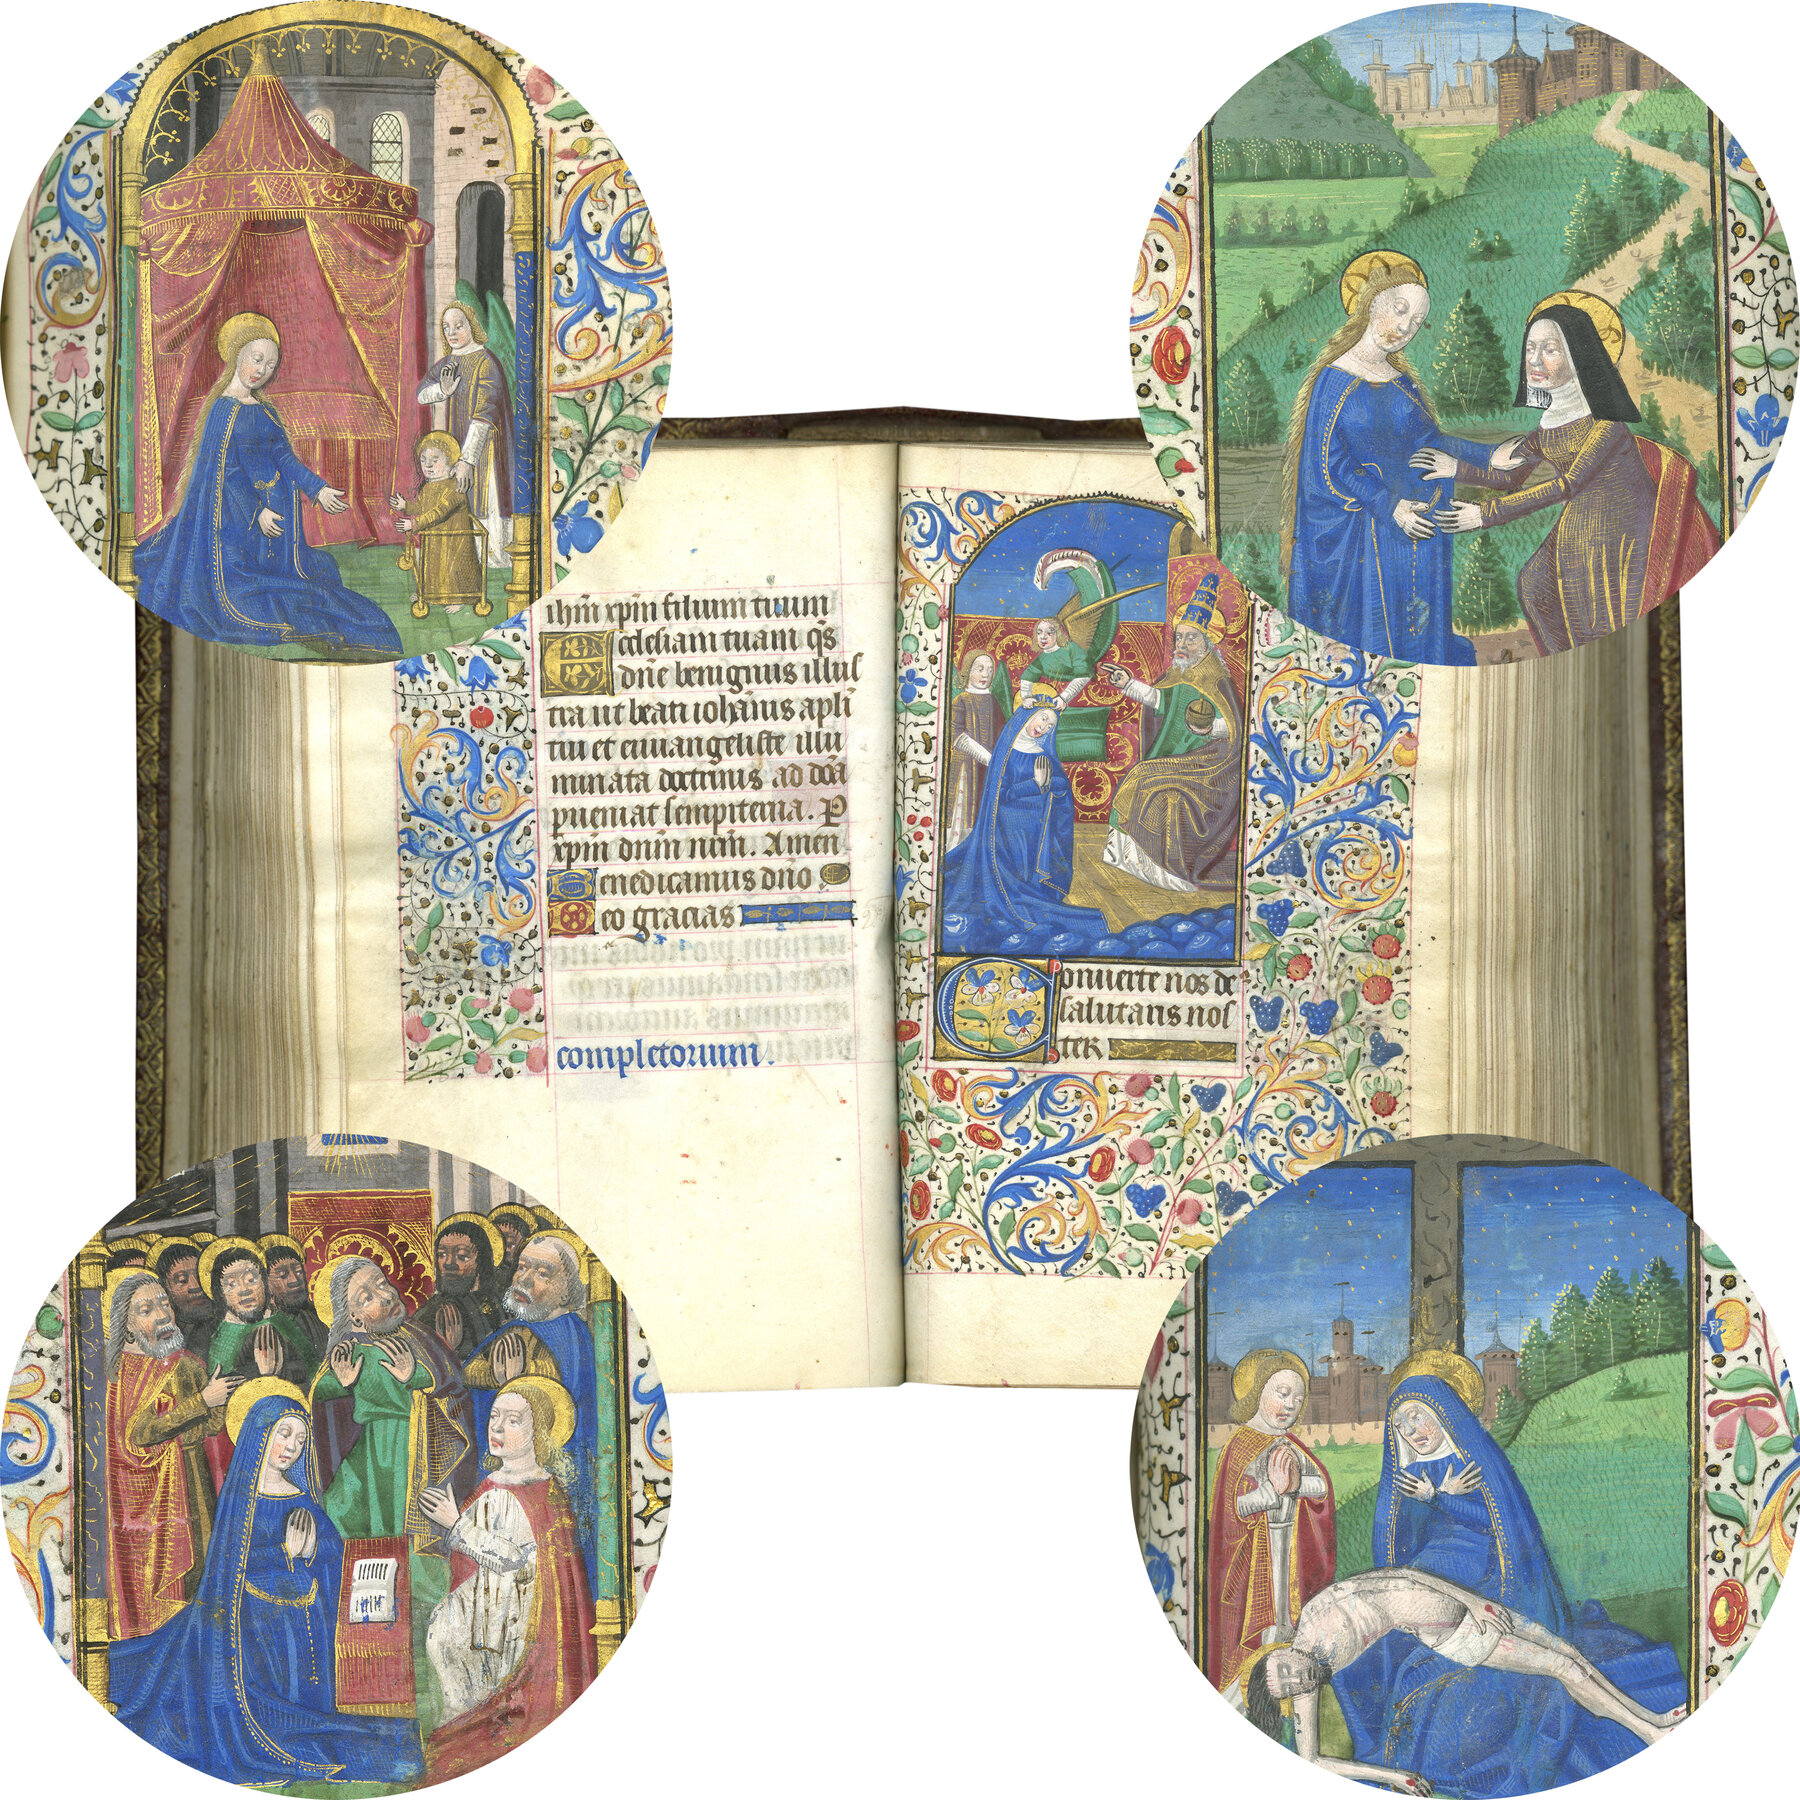 ihm xpm filium tuum
Ecclesiam tuam qs
dne benignus illus
tra ut beati iohanis apli
tui et euuangeliste illu
minata doctrinis ad doa
pueniat sempiterna. P
xpm dnm nrm. Amen
Benedicamus dno
Deo gracias
completorium.
Conuerte nos de
salutaris nos
ter